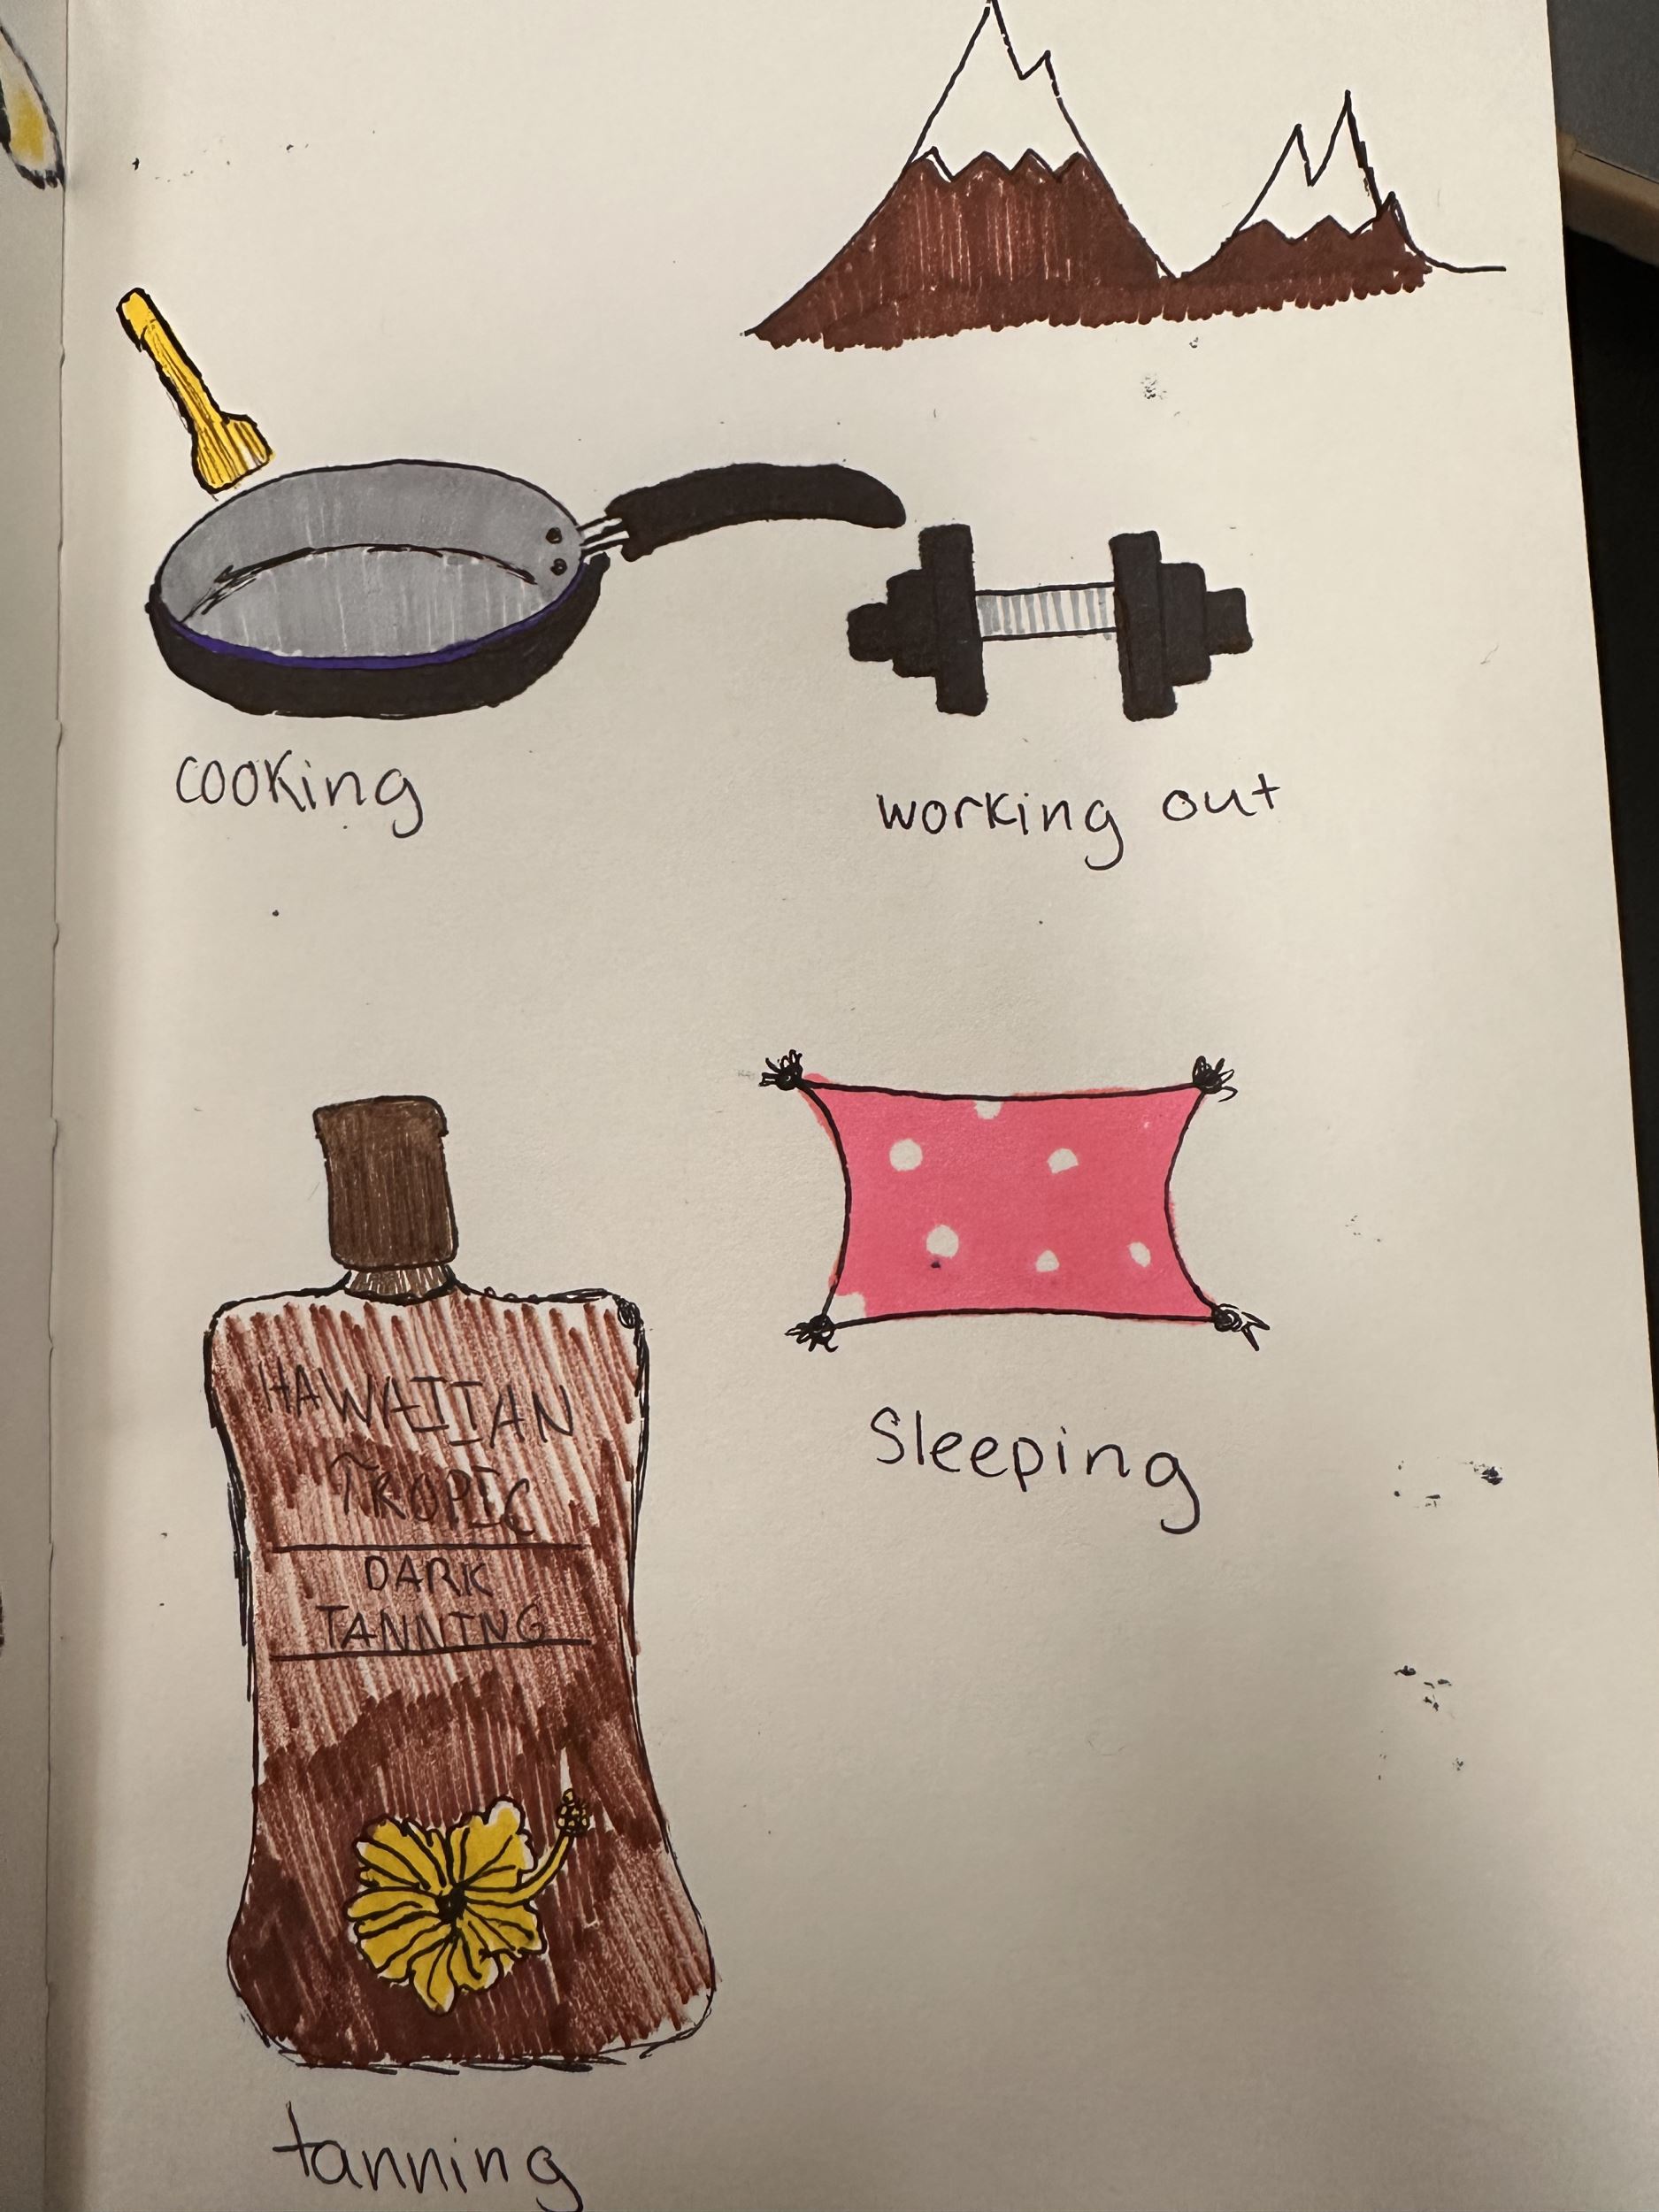 cooking
working out
Sleeping
HAWAIIAN
TROPIC
DARK
TANNING
tanning